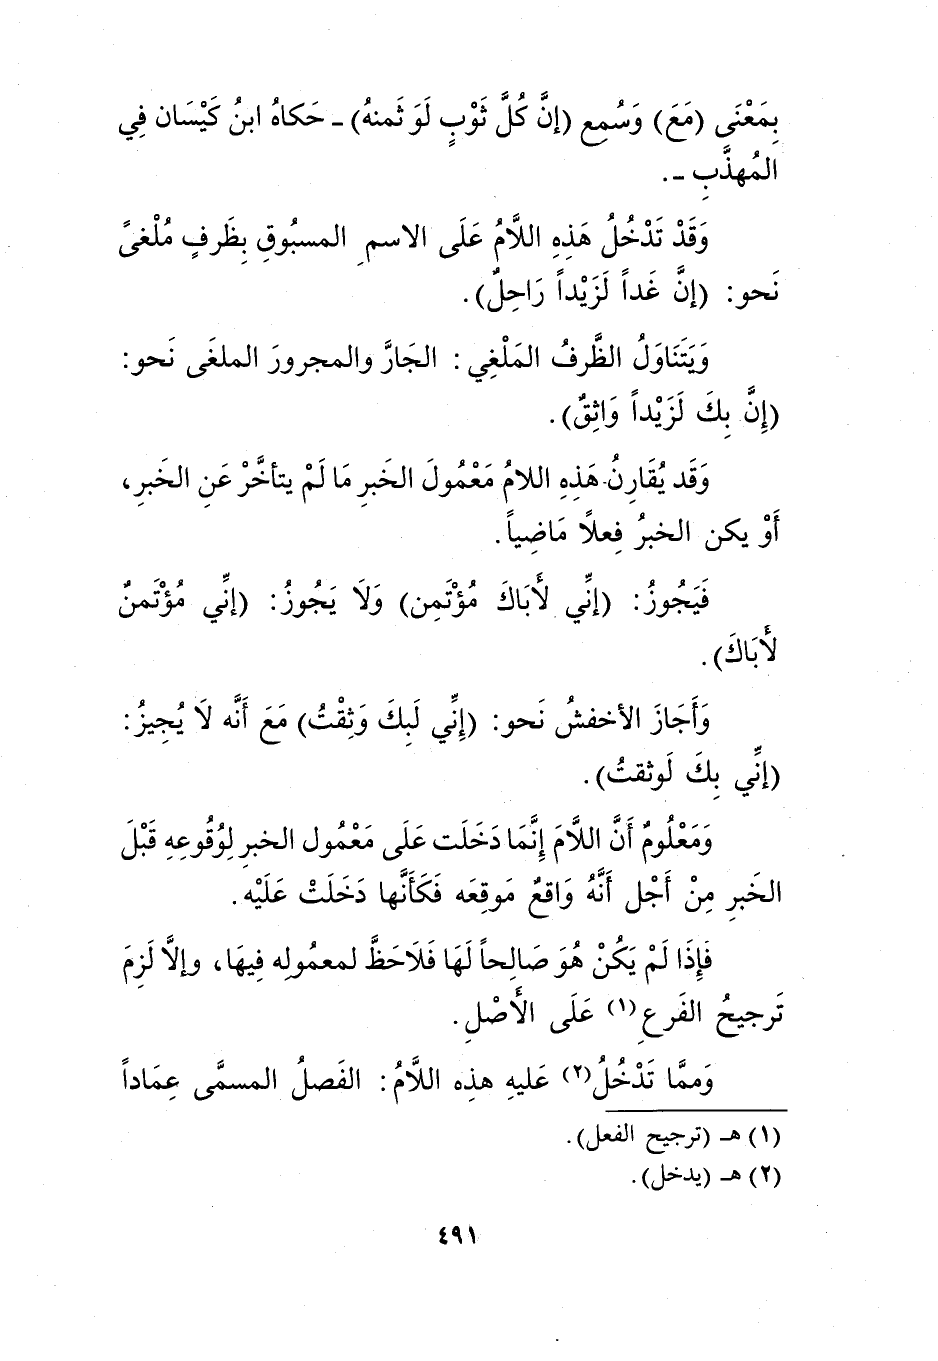 بِمَعْنَى (مَعَ) وَسُمِع (إنَّ كُلَّ ثَوْبٍ لَوَ ثَمنهُ) ـ حَكاهُ ابنُ كَيْسَان فِي
المُهذَّبِ ـ.
وَقَدْ تَدْخُلُ هَذِهِ اللَّامُ عَلَى الاسمِ المسبُوقِ بِظَرفٍ مُلْغىً
نَحو: (إنَّ غَداً لَزَيْداً رَاحِلٌ).
وَيَتَنَاوَلُ الظَّرفُ المَلْغِي: الجَارَّ والمجرورَ الملغَى نَحو:
(إنَّ بِكَ لَزَيْداً وَاثِقٌ).
وَقَد يُقَارِنُ هَذِهِ اللامُ مَعْمُولَ الخَبرِ مَا لَمْ يتأخَّرْ عَنِ الخَبرِ،
أَوْ يكن الخبرُ فِعلًا مَاضِياً.
فَيَجُوزُ: (إنِّي لأَبَاكَ مُؤْتَمِن) وَلَا يَجُوزُ: (إنِّي مُؤْتَمنٌ
لأَبَاكَ).
وَأَجَازَ الأخفشُ نَحو: (إنِّي لَبِكَ وَثِقْتُ) مَعَ أَنَّه لَا يُجِيزُ:
(إنِّي بِكَ لَوثقتُ).
وَمَعْلُومٌ أَنَّ اللَّامَ إنَّمَا دَخَلَت عَلَى مَعْمُول الخبرِ لِوُقُوعِهِ قَبْلَ
الخَبرِ مِنْ أَجْل أَنَّهُ وَاقعٌ مَوقِعَه فَكَأَنَّها دَخَلَتْ عَلَيْه.
فَإِذَا لَمْ يَكُنْ هُوَ صَالِحاً لَهَا فَلَاحَظَّ لمعمُولِه فِيهَا، وإلاَّ لَزِمَ
تَرجيحُ الفَرعِ (١) عَلَى الأَصْلِ.
وَممَّا تَدْخُلُ (٢) عَليهِ هذِه اللَّامُ: الفَصلُ المسمَّى عِمَاداً
(١) هـ (ترجيح الفعل).
(٢) هـ (يدخل).
٤٩١